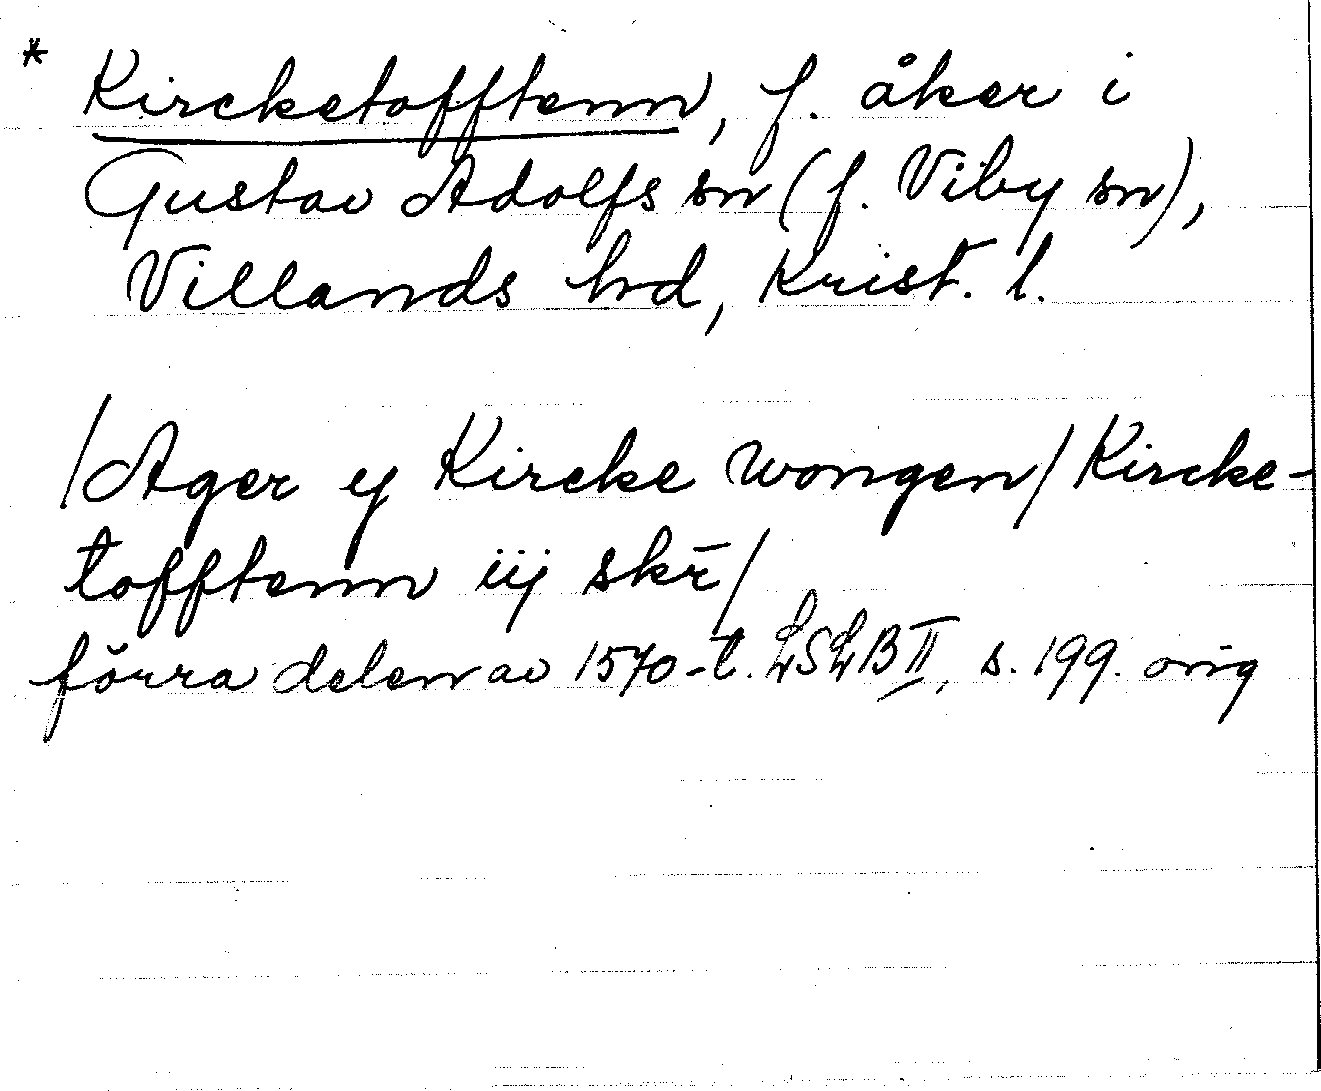 * Kircketofftenn, f. åker i
Gustav Adolfs sn (f. Viby sn),
Villands hd, Krist. l.
/Ager y Kircke wongen/ Kircke-
tofftenn iij skr̄/
förra delen av 1570-t. LSLB II, s. 199. orig